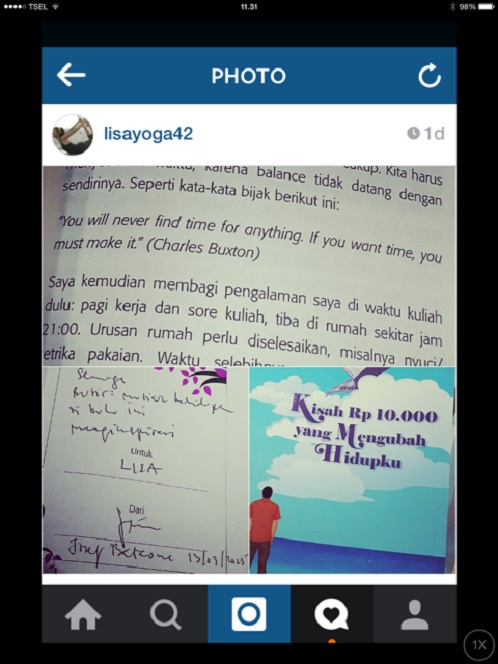 TSEL
11.31
98%
PHOTO
lisayoga42
1d
waktu, karena balance tidak datang dengan
cukup. Kita harus
sendirinya. Seperti kata-kata bijak berikut ini:
"You will never find time for anything. If you want time, you
must make it." (Charles Buxton)
Saya kemudian membagi pengalaman saya di waktu kuliah
dulu: pagi kerja dan sore kuliah, tiba di rumah sekitar jam
21:00. Urusan rumah perlu diselesaikan, misalnya nyuci/
etrika pakaian. Waktu
Semoga
di buku ini
menginspirasi
Untuk
LISA
Dari
Kisah Rp 10.000
yang Mengubah
Hidupku
1X